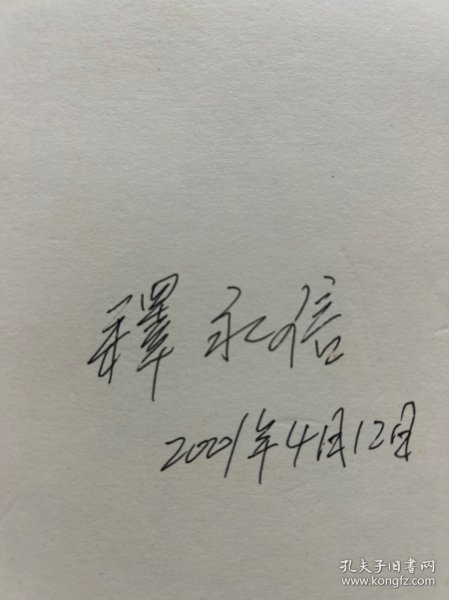 釋永信
2001年4月12日
孔夫子旧书网
www.kongfz.com